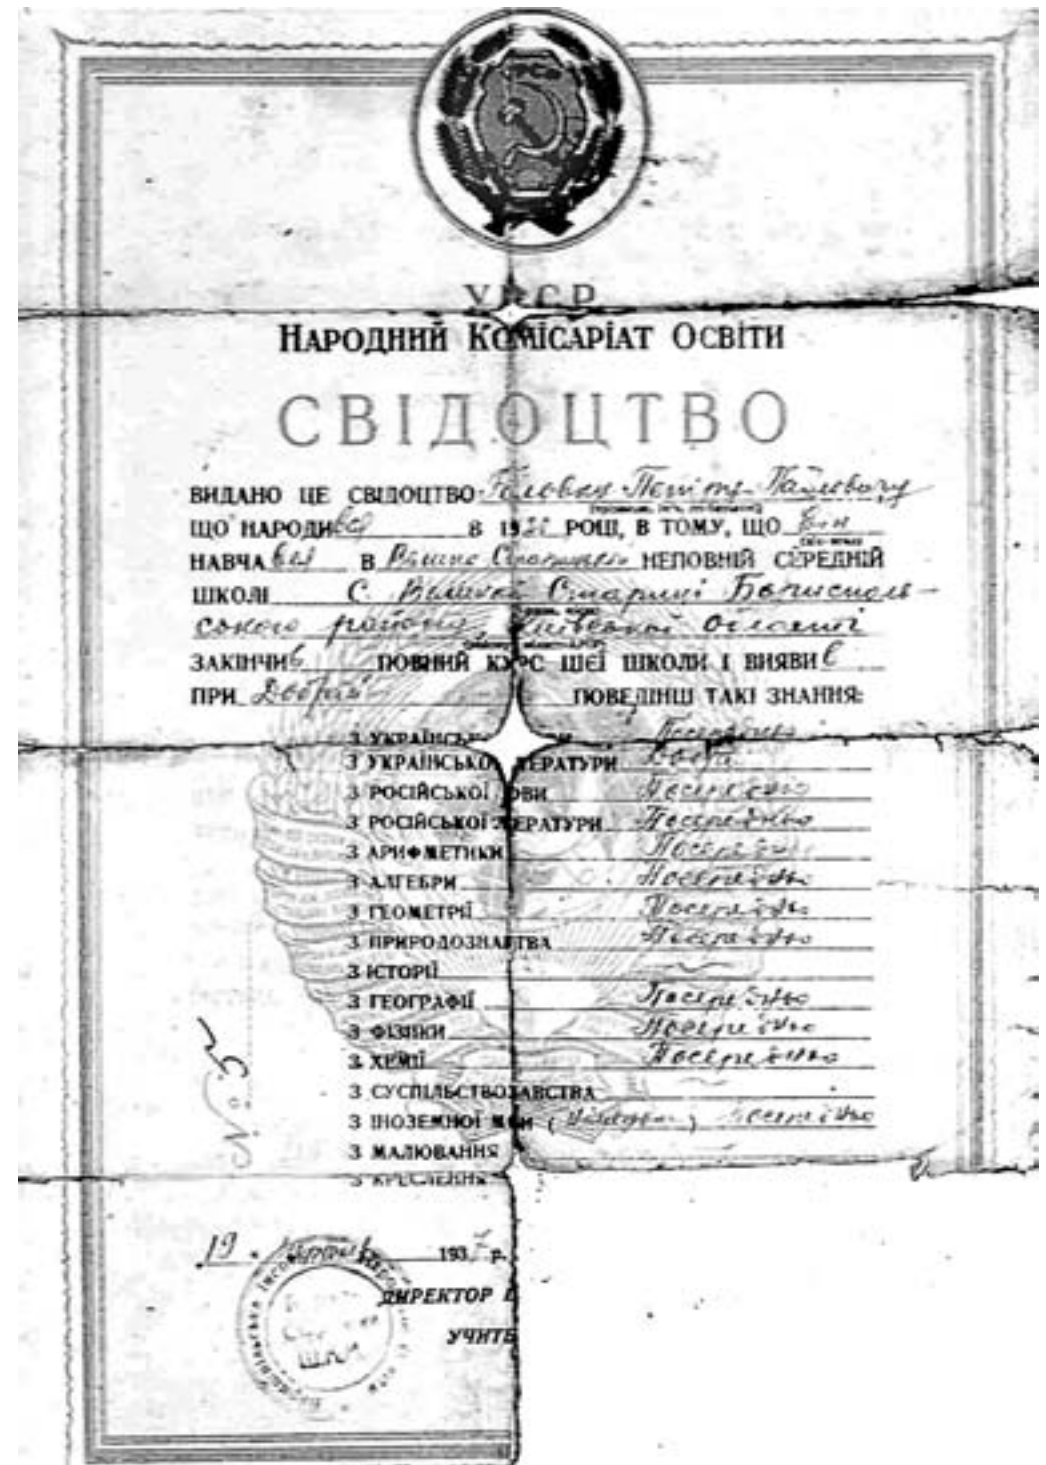 УРСР
НАРОДНИЙ КОМІСАРІАТ ОСВІТИ
СВІДОЦТВО
ВИДАНО ЦЕ СВІДОЦТВО Головку Петру Павловичу
ЩО НАРОДИвся В 19 РОЦІ, В ТОМУ, ЩО він
НАВЧАвся В НЕПОВНІЙ СЕРЕДНІЙ
ШКОЛІ С. Великої Стариці Бориспіль-
ського району Київської області
ЗАКІНЧИв ПОВНИЙ КУРС ЦІЄЇ ШКОЛИ І ВИЯВИв
ПРИ Добрій ПОВЕДІНЦІ ТАКІ ЗНАННЯ:
З УКРАЇНСЬК Посередньо
З УКРАЇНСЬКО ЕРАТУРИ Добре
З РОСІЙСЬКОЇ ОВИ Посередньо
З РОСІЙСЬКОЇ ЕРАТУРИ Посередньо
З АРИФМЕТИКИ Посередньо
З АЛГЕБРИ Посередньо
З ГЕОМЕТРІЇ Посередньо
З ПРИРОДОЗНАВТВА Посередньо
З ІСТОРІЇ
З ГЕОГРАФІЇ Посередньо
З ФІЗИКИ Посередньо
З ХЕМІЇ Посередньо
З СУСПІЛЬСТВОЗАВСТВА
З ІНОЗЕМНОЇ МОВИ ( ) Посередньо
З МАЛЮВАННЯ
З КРЕСЛЕННЯ
№ 5
19 1937 р.
ДИРЕКТОР
УЧИТЕ